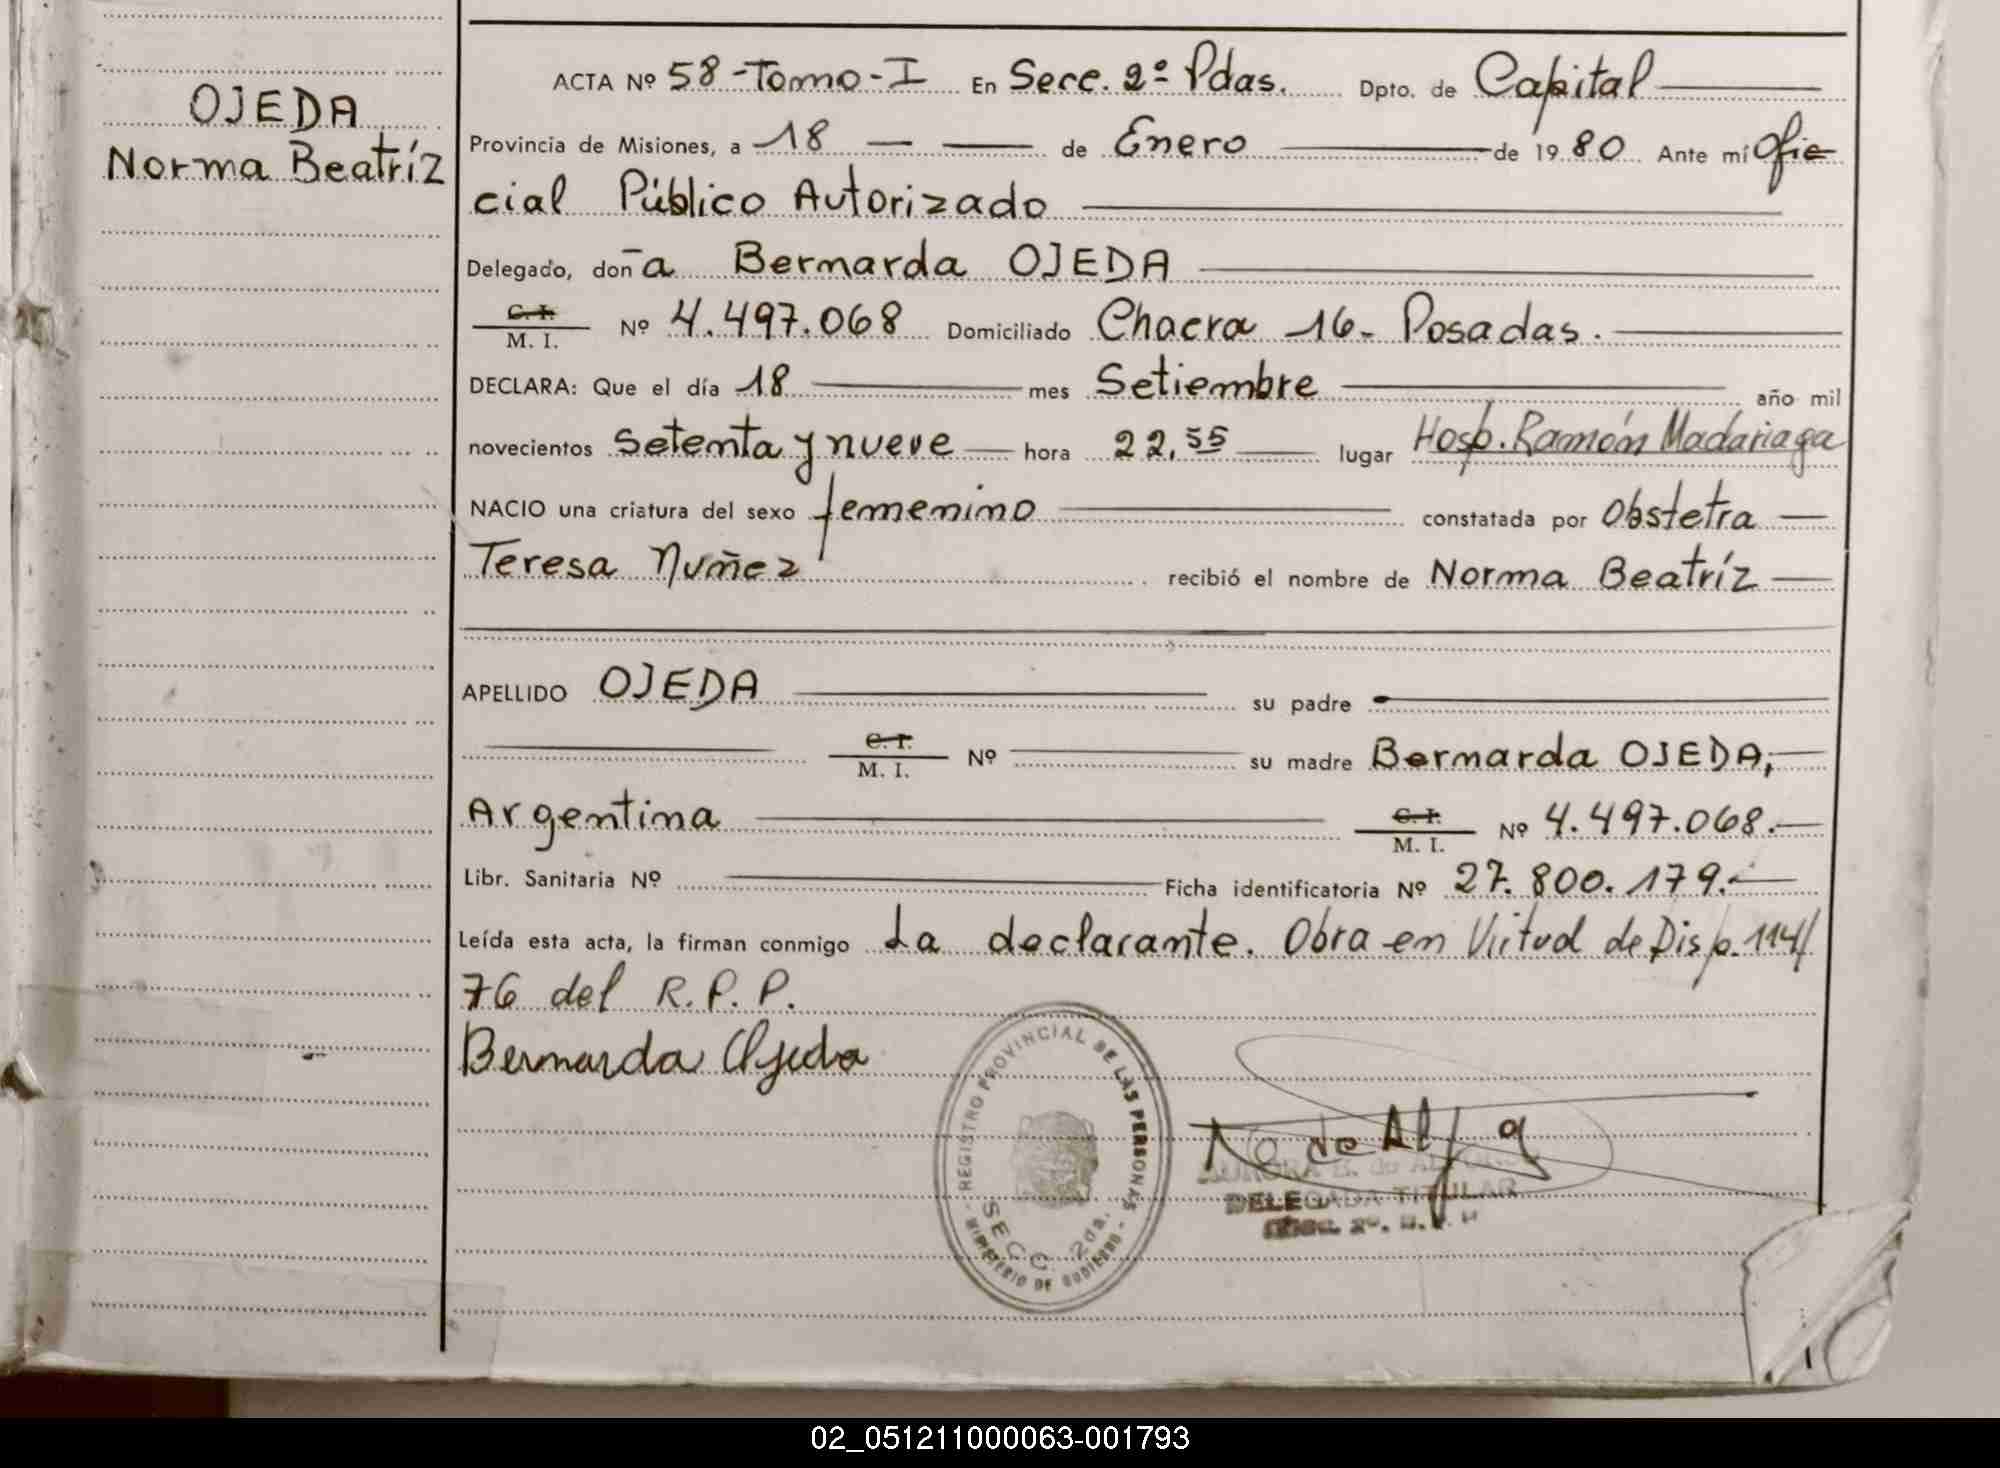 OJEDA
Norma Beatríz
ACTA Nº 58-Tomo-I En Secc. 2º Pdas. Dpto. de Capital
Provincia de Misiones, a 18 de Enero de 1980 Ante mí Ofi-
cial Público Autorizado
Delegado, doña Bernarda OJEDA
C. I.
M. I. Nº 4.497.068 Domiciliado Chacra 16- Posadas.
DECLARA: Que el día 18 mes Setiembre año mil
novecientos Setenta y nueve hora 22,55 lugar Hosp. Ramón Madariaga
NACIO una criatura del sexo femenino constatada por Obstetra
Teresa Nuñez recibió el nombre de Norma Beatríz
APELLIDO OJEDA su padre
C. I.
M. I. Nº su madre Bernarda OJEDA,
Argentina C. I.
M. I. Nº 4.497.068.
Libr. Sanitaria Nº Ficha identificatoria Nº 27.800.179.
Leída esta acta, la firman conmigo La declarante. Obra en Virtud de Disp. 114/
76 del R.P.P.
Bernarda Ojeda
REGISTRO PROVINCIAL DE LAS PERSONAS
SECC. 2da.
MINISTERIO DE GOBIERNO
DELEGADA TITULAR
02_051211000063-001793